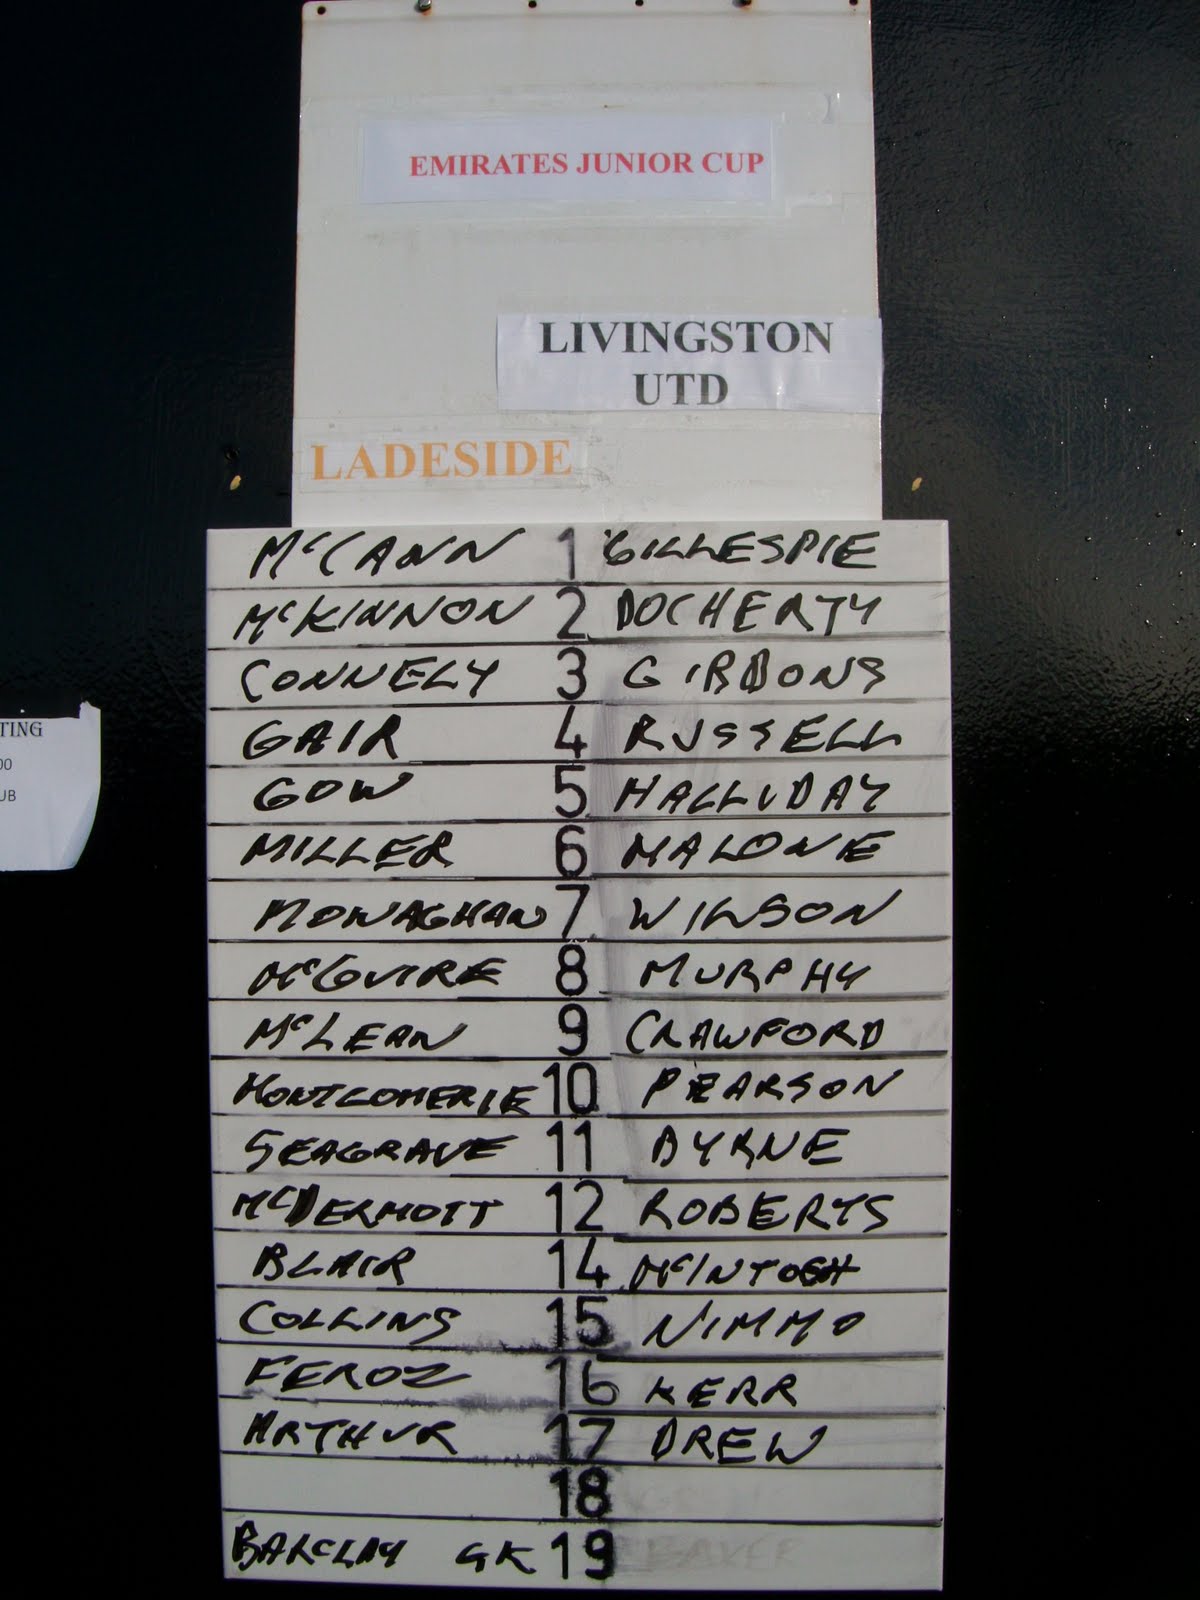 EMIRATES JUNIOR CUP
LIVINGSTON
UTD
LADESIDE
McCANN 1 GILLESPIE
McKINNON 2 DOCHERTY
CONNELY 3 GIBBONS
GAIR 4 RUSSELL
GOW 5 HALLIDAY
MILLER 6 MALONE
MONAGHAN 7 WILSON
McGUIRE 8 MURPHY
McLEAN 9 CRAWFORD
MONTGOMERIE 10 PEARSON
SEAGRAVE 11 BYRNE
McDERMOTT 12 ROBERTS
BLAIR 14 McINTOSH
COLLINS 15 NIMMO
FEROZ 16 KERR
ARTHUR 17 DREW
18
BARCLAY GK 19
TING
00
UB